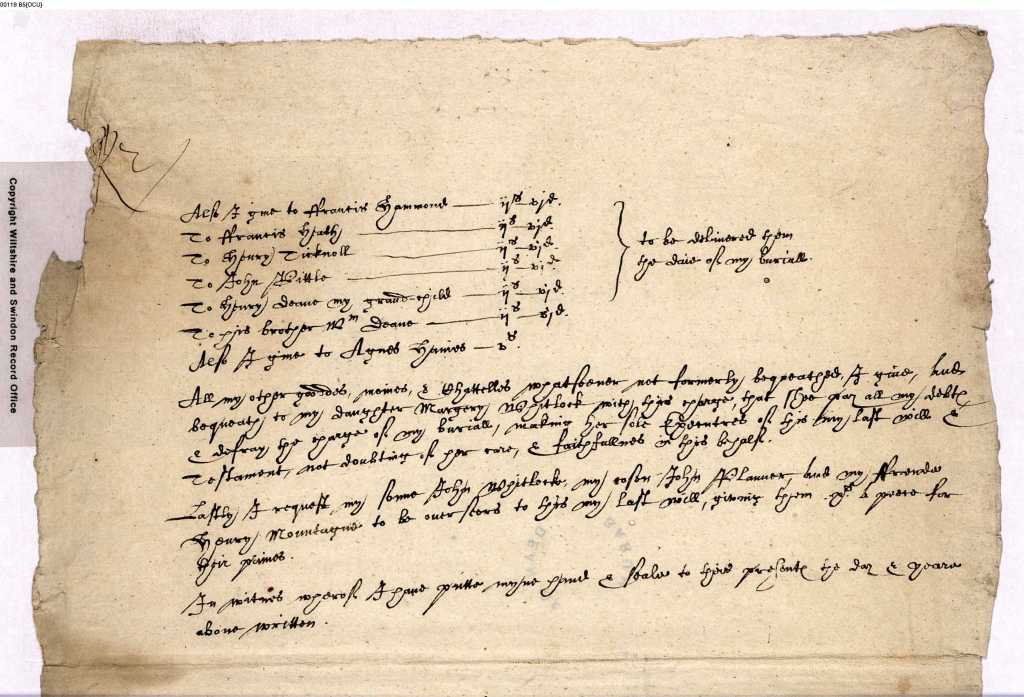 00119 BS{OCU}
Copyright Wiltshire and Swindon Record Office
Also I giue to ffrancis Hammond — ijs — vjd.
To ffrancis Heath — ijs — vjd.
To Henry Ticknoll — ijs — vjd.
To John Pittle — ijs — vjd.
To Henry Deane my grand-child — ijs — vjd.
To his brother Wm Deane — ijs — vjd.
Also I giue to Agnes Haines — vs.
to be deliuered them
the daie of my buriall.
All my other gooddes, monies, & Chattelles whatsoeuer not formerly bequeathed, I giue, and
bequeath to my daughter Margery Whitlock with this charge, that shee pay all my debtes
& defray the charge of my buriall, making her sole Executres of this my last will &
Testament, not doubting of her care, & faithfullnes in this behalf.
Lastly I request my sonne John Whitlocke, my cosen John Planner, and my ffrende
Henry Mountague to be ouerseers to this my last will, giuing them a peece for
their paines.
In witnes wherof I haue putte myne hand & seale to these presentes the day & yeare
aboue written.